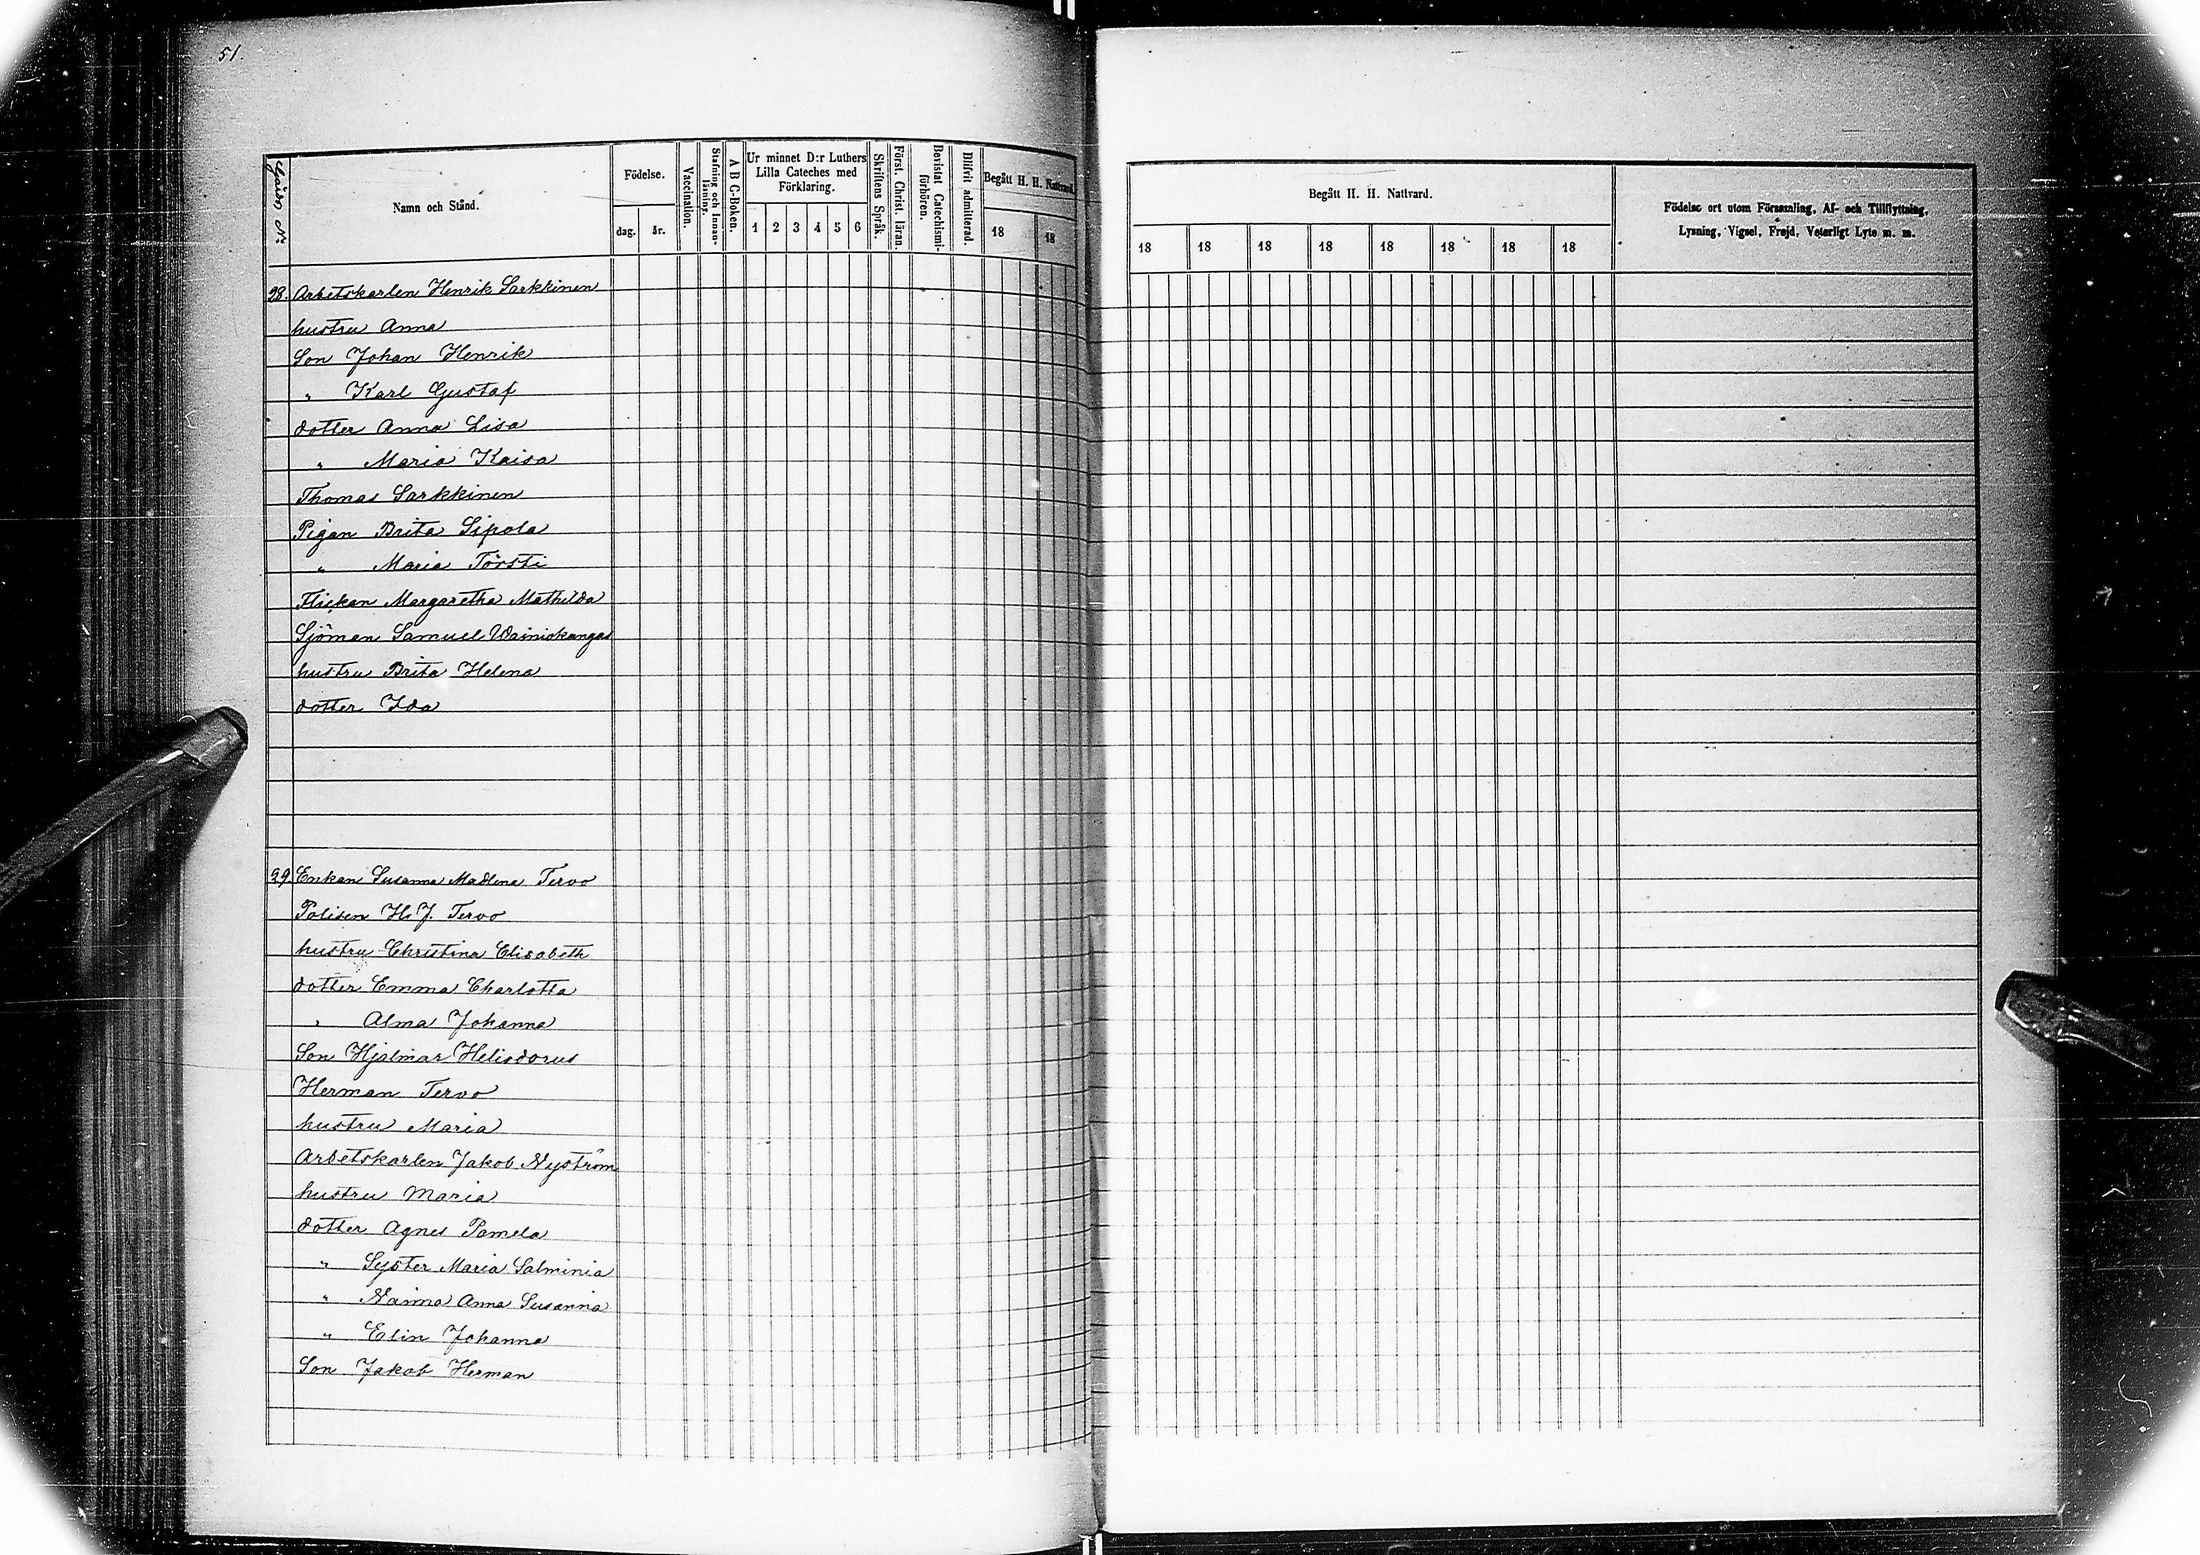 51.
Gård Nr
Namn och Stånd.
Födelse.
dag. år.
Vaccination.
Stafning och Innanläsning.
A B C-Boken.
Ur minnet D:r Luthers
Lilla Cateches med
Förklaring.
1 2 3 4 5 6
Skriftens Språk.
Först. Christ. läran.
Bevistat Catechismi-
förhören.
Blifvit admitterad.
Begått H. H. Nattvard.
18 18
28. Arbetskarlen Henrik Sarkkinen
hustru Anna
Son Johan Henrik
" Karl Gustaf
dotter Anna Lisa
" Maria Kaisa
Thomas Sarkkinen
Pigan Brita Sipola
" Maria Törsti
Flickan Margaretha Mathilda
Sjöman Samuel Wainiokangas
hustru Brita Helena
dotter Ida
29 Enkan Susanna Madlena Tervo
Polisen H. J. Tervo
hustru Christina Elisabeth
dotter Emma Charlotta
" Alma Johanna
Son Hjalmar Heliodorus
Herman Tervo
hustru Maria
Arbetskarlen Jakob Nyström
hustru Maria
dotter Agnes Pamela
" Syster Maria Salminia
" Naima Anna Susanna
" Elin Johanna
Son Jakob Herman
Begått H. H. Nattvard.
18 18 18 18 18 18 18 18
Födelse ort utom Församling, Af- och Tillflyttning,
Lysning, Vigsel, Frejd, Veterligt Lyte m. m.